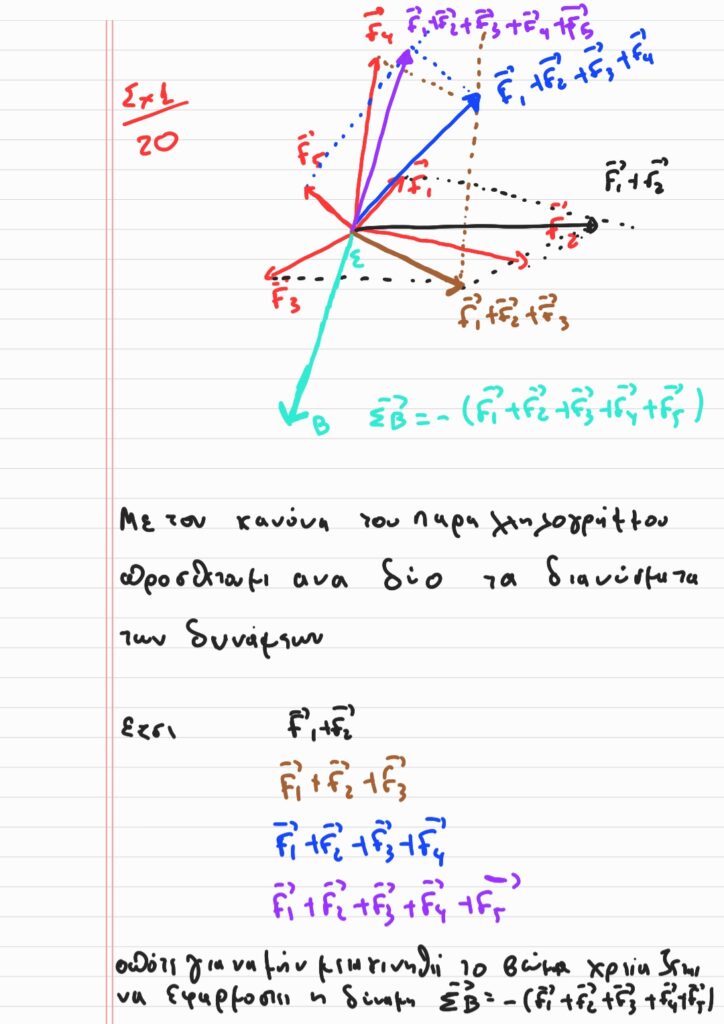 F⃗₄
F⃗₁+F⃗₂+F⃗₃+F⃗₄+F⃗₅
F⃗₁+F⃗₂+F⃗₃+F⃗₄
Σx1
20
F⃗₅
F⃗₁
F⃗₁+F⃗₂
F⃗₂
Σ
F⃗₃
F⃗₁+F⃗₂+F⃗₃
B
ΣB⃗=-(F⃗₁+F⃗₂+F⃗₃+F⃗₄+F⃗₅)
Με τον κανόνα του παραλληλογράμμου
προσθέταμι ανα δύο τα διανύσματα
των δυνάμεων
Ετσι F⃗₁+F⃗₂
F⃗₁+F⃗₂+F⃗₃
F⃗₁+F⃗₂+F⃗₃+F⃗₄
F⃗₁+F⃗₂+F⃗₃+F⃗₄+F⃗₅
οπότε για να μήν μετακινηθεί το σώμα χρειάζεται
να εφαρμοστει η δύναμη ΣB⃗=-(F⃗₁+F⃗₂+F⃗₃+F⃗₄+F⃗₅)